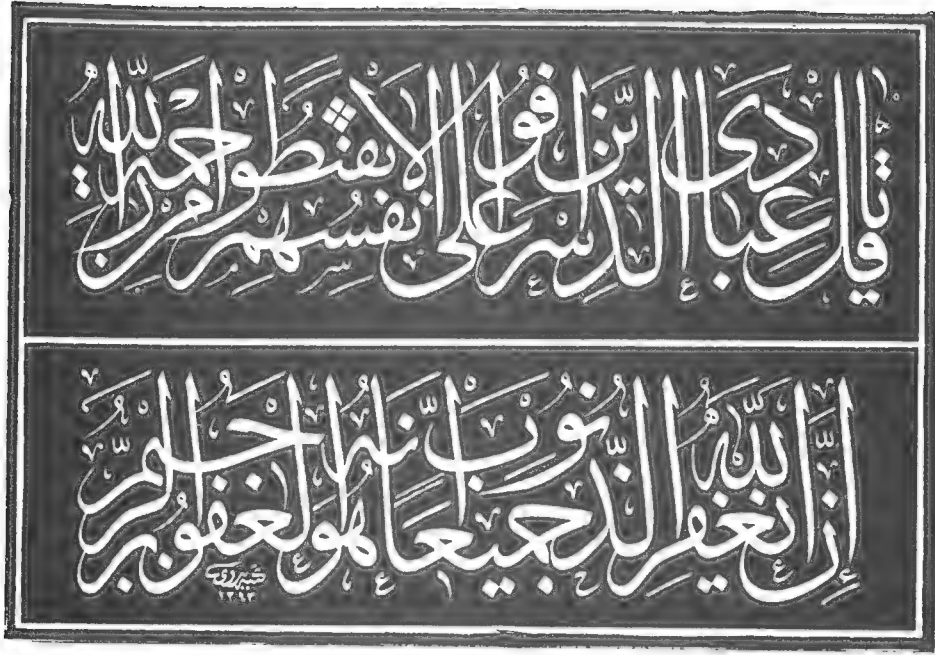 قل يا عبادى الذين اسرفوا على انفسهم لا تقنطوا من رحمة الله
إن الله يغفر الذنوب جميعا انه هو الغفور الرحيم